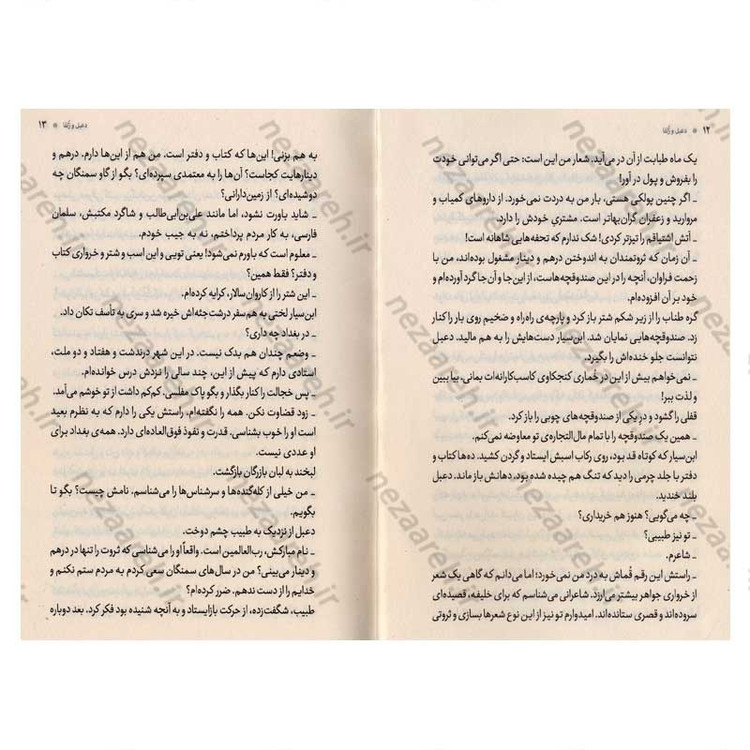 ۱۲ * دعبل و زلفا
یک ماه طبابت از آن در می‌آید. شعار من این است: حتی اگر می‌توانی خودت
را بفروش و پول در آور!
ـ اگر چنین پولکی هستی، بار من به دردت نمی‌خورد. از داروهای کمیاب و
مروارید و زعفران گران‌بهاتر است. مشتریِ خودش را دارد.
ـ آتش اشتیاقم را تیزتر کردی! شک ندارم که تحفه‌هایی شاهانه است!
ـ آن زمان که ثروتمندان به اندوختن درهم و دینار مشغول بوده‌اند، من با
زحمت فراوان، آنچه را در این صندوقچه‌هاست، از این‌جا و آن‌جا گرد آورده‌ام و
خود بر آن افزوده‌ام.
گره طناب را از زیر شکم شتر باز کرد و پارچه‌ی راه‌راه و ضخیم روی بار را کنار
زد. صندوقچه‌هایی نمایان شد. ابن‌سیار دست‌هایش را به هم مالید. دعبل
نتوانست جلو خنده‌اش را بگیرد.
ـ نمی‌خواهم بیش از این در خُماری کنجکاوی کاسب‌کارانه‌ات بمانی. بیا ببین
و لذت ببر!
قفلی را گشود و در یکی از صندوقچه‌های چوبی را باز کرد.
ـ همین یک صندوقچه را با تمام مال‌التجاره‌ی تو معاوضه نمی‌کنم.
ابن‌سیار که کوتاه قد بود، روی رکاب اسبش ایستاد و گردن کشید. ده‌ها کتاب و
دفتر با جلد چرمی را دید که تنگ هم چیده شده بود. دهانش باز ماند. دعبل
بلند خندید.
ـ چه می‌گویی؟ هنوز هم خریداری؟
ـ تو نیز طبیبی؟
ـ شاعرم.
ـ راستش این رقم قُماش به درد من نمی‌خورد؛ اما می‌دانم که گاهی یک شعر
از خرواری جواهر بیشتر می‌ارزد. شاعرانی می‌شناسم که برای خلیفه، قصیده‌ای
سروده‌اند و قصری ستانده‌اند. امیدوارم تو نیز از این نوع شعرها بسازی و ثروتی
دعبل و زلفا * ۱۳
به هم بزنی! این‌ها که کتاب و دفتر است. من هم از این‌ها دارم. درهم و
دینارهایت کجاست؟ آن‌ها را به معتمدی سپرده‌ای؟ بگو از گاو سمنگان چه
دوشیده‌ای؟ از زمین‌دارانی؟
ـ شاید باورت نشود، اما مانند علی‌بن‌ابی‌طالب و شاگرد مکتبش، سلمان
فارسی، به کار مردم پرداختم، نه به جیب خودم.
ـ معلوم است که باورم نمی‌شود! یعنی تویی و این اسب و شتر و خرواری کتاب
و دفتر؟ فقط همین؟
ـ این شتر را از کاروان‌سالار، کرایه کرده‌ام.
ابن‌سیار لختی به هم‌سفر درشت‌جثه‌اش خیره شد و سری به تأسف تکان داد.
ـ در بغداد چه داری؟
ـ وضعم چندان هم بدک نیست. در این شهر درندشت و هفتاد و دو ملت،
استادی دارم که پیش از این، چند سالی را نزدش درس خوانده‌ام.
ـ پس خجالت را کنار بگذار و بگو پاک مفلسی. کم‌کم داشت از تو خوشم می‌آمد.
ـ زود قضاوت نکن. همه را نگفته‌ام. راستش یکی را دارم که به نظرم بعید
است او را خوب بشناسی. قدرت و نفوذ فوق‌العاده‌ای دارد. همه‌ی بغداد برای
او عددی نیست.
لبخند به لبان بازرگان بازگشت.
ـ من خیلی از کله‌گنده‌ها و سرشناس‌ها را می‌شناسم. نامش چیست؟ بگو تا
بگویم.
دعبل از نزدیک به طبیب چشم دوخت.
ـ نام مبارکش، رب‌العالمین است. واقعاً او را می‌شناسی که ثروت را تنها در درهم
و دینار می‌بینی؟ من در سال‌های سمنگان سعی کردم به مردم ستم نکنم و
خدایم را از دست ندهم. ضرر کرده‌ام؟
طبیب، شگفت‌زده، از حرکت بازایستاد و به آنچه شنیده بود فکر کرد. بعد دوباره
nezaareh.ir